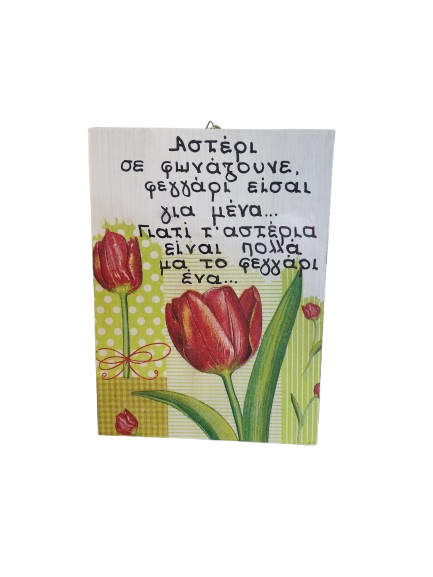 Αστέρι
σε φωνάζουνε,
φεγγάρι είσαι
για μένα...
Γιατί τ'αστέρια
είναι πολλά
μα το φεγγάρι
ένα...